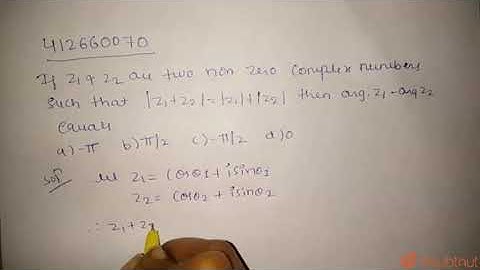 412660070
If z₁ & z₂ are two non zero complex numbers
such that |z₁+z₂| = |z₁|+|z₂| then arg. z₁ - arg z₂
equals
a) -π b) π/2 c) -π/2 d) 0
Sol. let z₁ = cosθ₁ + isinθ₁
z₂ = cosθ₂ + isinθ₂
∴ z₁ + z₂
doubtnut